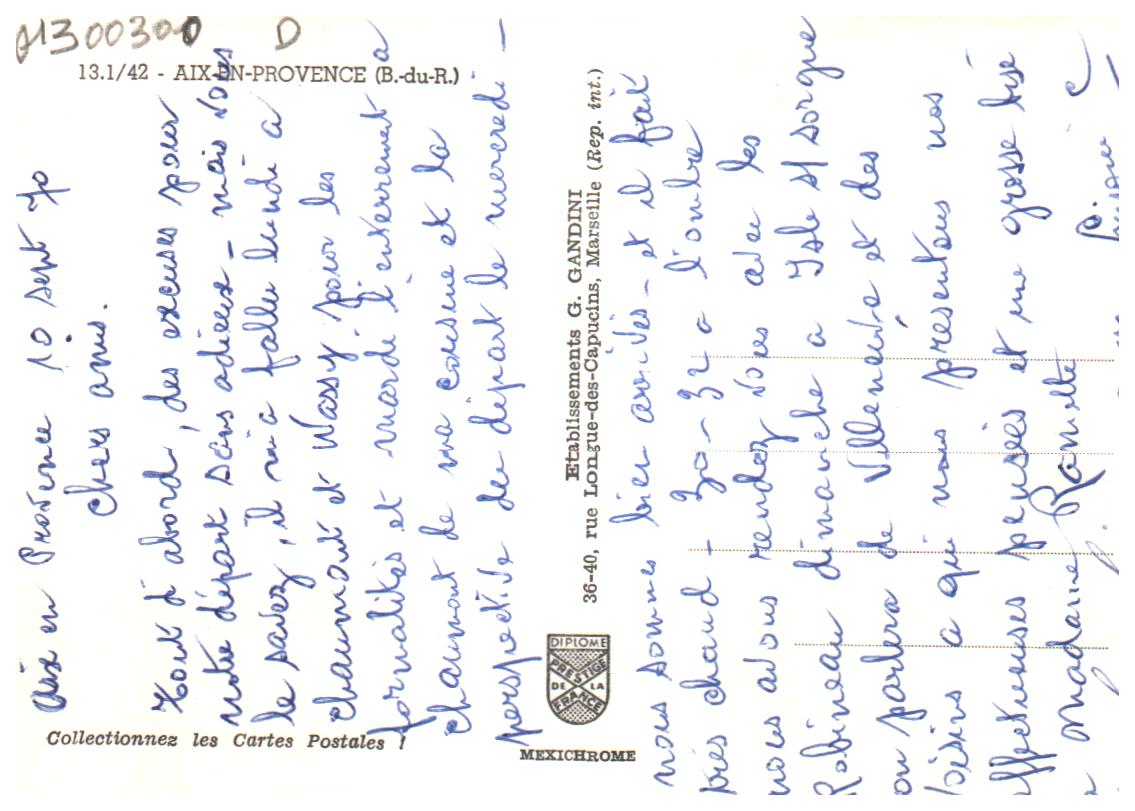 A1300300 D
13.1/42 - AIX-EN-PROVENCE (B.-du-R.)
Aix en Provence 10 sept 70
Chers amis.
Tout d'abord, des excuses pour
notre départ sans adieux - mais vous
le savez, il m'a fallu lundi à
Chaumont et Wassy pour les
formalités et mardi l'enterrement à
Chaumont de ma cousine et la
perspective du départ le mercredi -
Etablissements G. GANDINI
36-40, rue Longue-des-Capucins, Marseille (Rep. int.)
nous sommes bien arrivés - et il fait
très chaud - 30 - 32 à l'ombre
nous avons rendez vous avec les
Robineau dimanche à Isle s/ Sorgue
on parlera de Villeneuve et des
voisins à qui nous présentons nos
affectueuses pensées et une grosse bise
à Madame Ramette
DIPLOME
PRESTIGE
DE LA
FRANCE
MEXICHROME
Collectionnez les Cartes Postales !